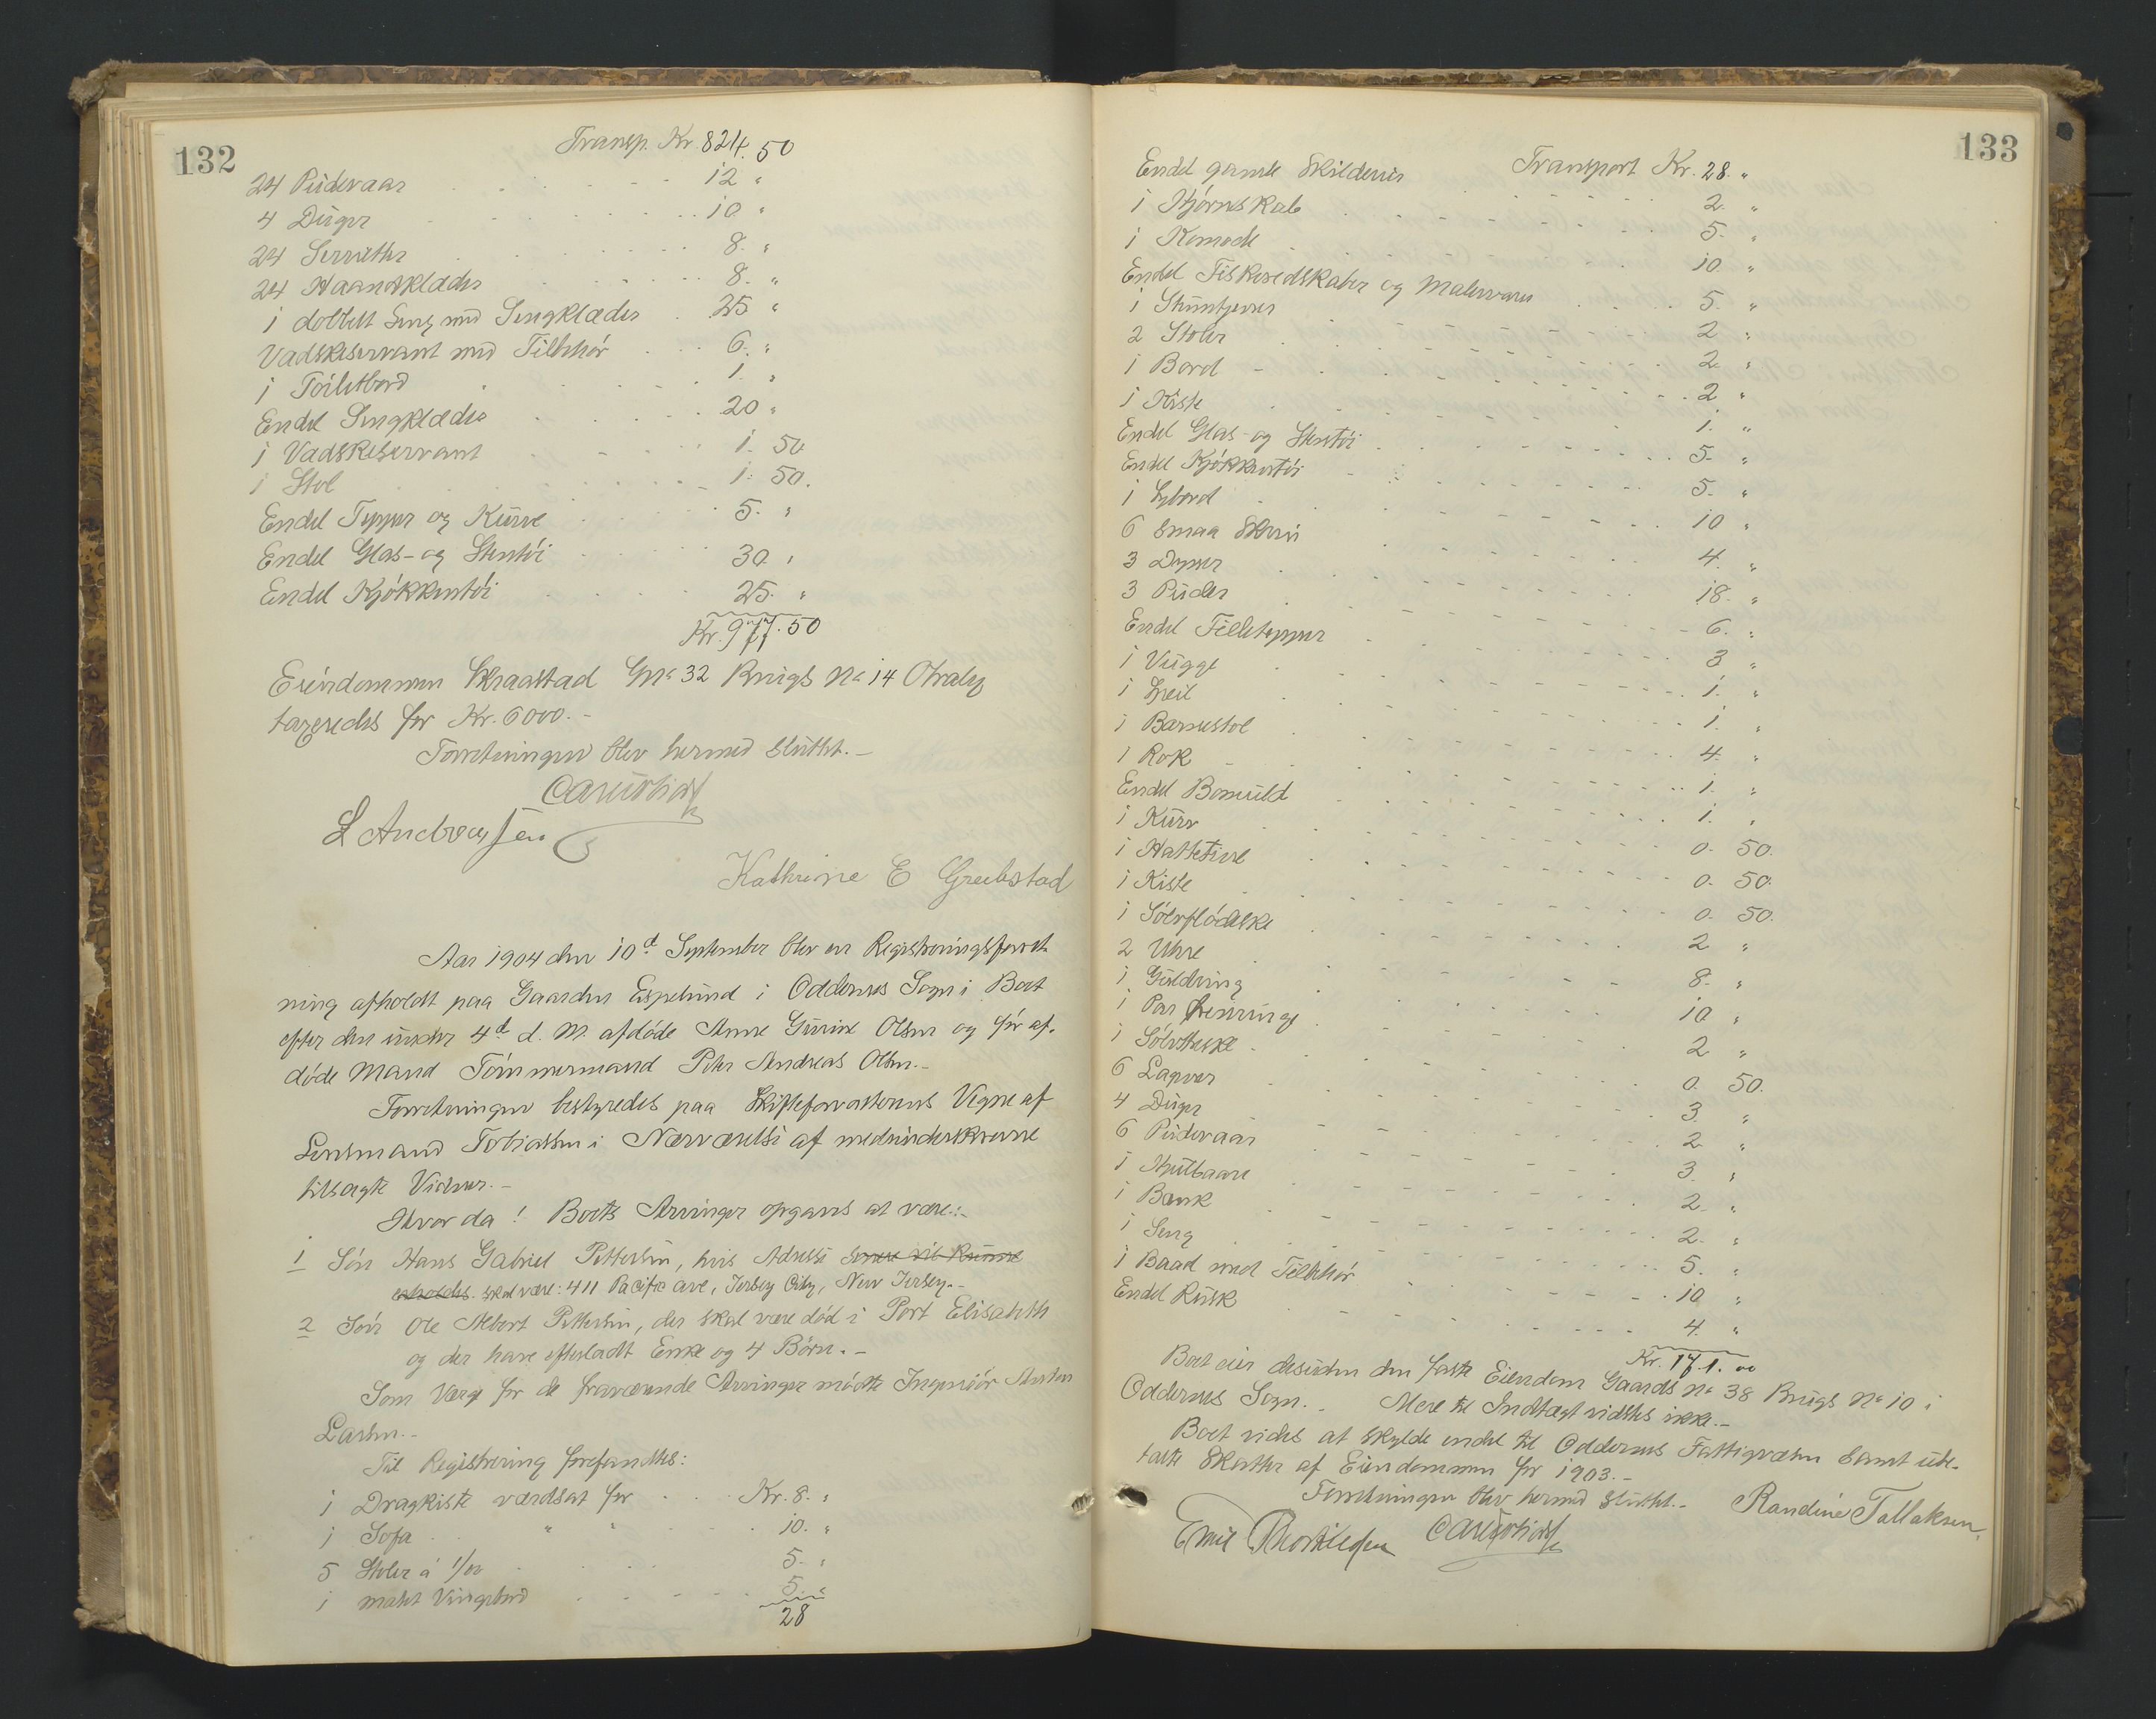 132
Transp. Kr. 824. 50
24 Pudevaar 12 "
4 Duger 10 "
24 Servietter 8. "
24 Haandklæder 8. "
1 dobbelt Seng med Sengklæder 25 "
Vadskeservant med Tilbehør 6. "
1 Toiletbord 1. "
Endel Sengklæder 20 "
1 Vadskeservant 1. 50
1 Stol 1. 50.
Endel Tepper og Kurve 5. "
Endel Glas- og Stentøi 30. "
Endel Kjøkkentøi 25. "
Kr. 977. 50
Eiendommen Skraastad Gno 32 Brugs No 14 Oddernes
taxeredes for Kr. 6000.-
Forretningen blev hermed sluttet.-
L Andreassen
Kathrine E Greibstad
Aar 1904 den 10d September blev en Registreringsforret-
ning afholdt paa Gaarden Espelund i Oddernes Sogn i Boet
efter den under 4d d. M. afdøde Anne Gurine Olsen og før af-
døde Mand Tømmermand Peter Andreas Olsen.-
Forretningen bestyredes paa Skifteforvalterens Vegne af
Lensmand Tobiassen i Nærværelse af medunderskrevne
tilsagte Vidner.-
Hvor da! Boets Arvinger opgaves at være:-
1 Søn Hans Gabriel Pettersen, hvis Adresse senere vil kunne
erholdes. skal være: 411 Pacific ave, Jersey City, New Jersey.-
2 Søn Ole Albert Pettersen, der skal være død i Port Elisabeth
og der have efterladt Enke og 4 Børn.-
Som Værge for de fraværende Arvinger mødte Ingeniør Anton
Larsen.-
Til Registrering forefandtes:
1 Dragkiste værdsat for Kr. 8. "
1 Sofa " " 10. "
5 Stoler á 1/00 5. "
1 malet Vingebord 5. "
28
133
Endel gamle Skilderier Transport Kr. 28. "
1 Hjørneskab 2. "
1 Komode 5. "
Endel Fiskeredskaber og Malervarer 10. "
1 5. "
2 Stoler 2 "
1 Bord 2. "
1 Kiste 2 "
Endel Glas- og Stentøi 1. "
Endel Kjøkkentøi 5. "
1 5. "
6 smaa Skrin 10 "
3 Dyner 4. "
3 Puder 18. "
Endel Filletepper 6. "
1 Vugge 3 "
1 Speil 1. "
1 Barnestol 1. "
1 Rok 4. "
Endel Bomuld 1. "
1 Kurv 1. "
1 Hattetine 0. 50.
1 Kiste 0. 50.
1 Sølvflødeske 0. 50.
2 Uhre 2 "
1 Guldring 8. "
1 Par Øreringe 10 "
1 Sølvtheske 2 "
6 Lagner 0. 50.
4 Duger 3. "
6 Pudevaar 2. "
1 Hjulbaare 3. "
1 Bænk 2. "
1 Seng 2. "
1 Baad med Tilbehør 5. "
Endel Rusk 10 "
4. "
Kr. 171. 00
Boet eier desuden den faste Eiendom Gaards No 38 Brugs No 10 i
Oddernes Sogn.- Mere til Indtægt vidstes ikke.-
Boet vides at skylde endel til Oddernes Fattigvæsen samt ube-
talte Skatter af Eiendommen for 1903.-
Forretningen blev hermed sluttet.- Randine Tallaksen.
Emil